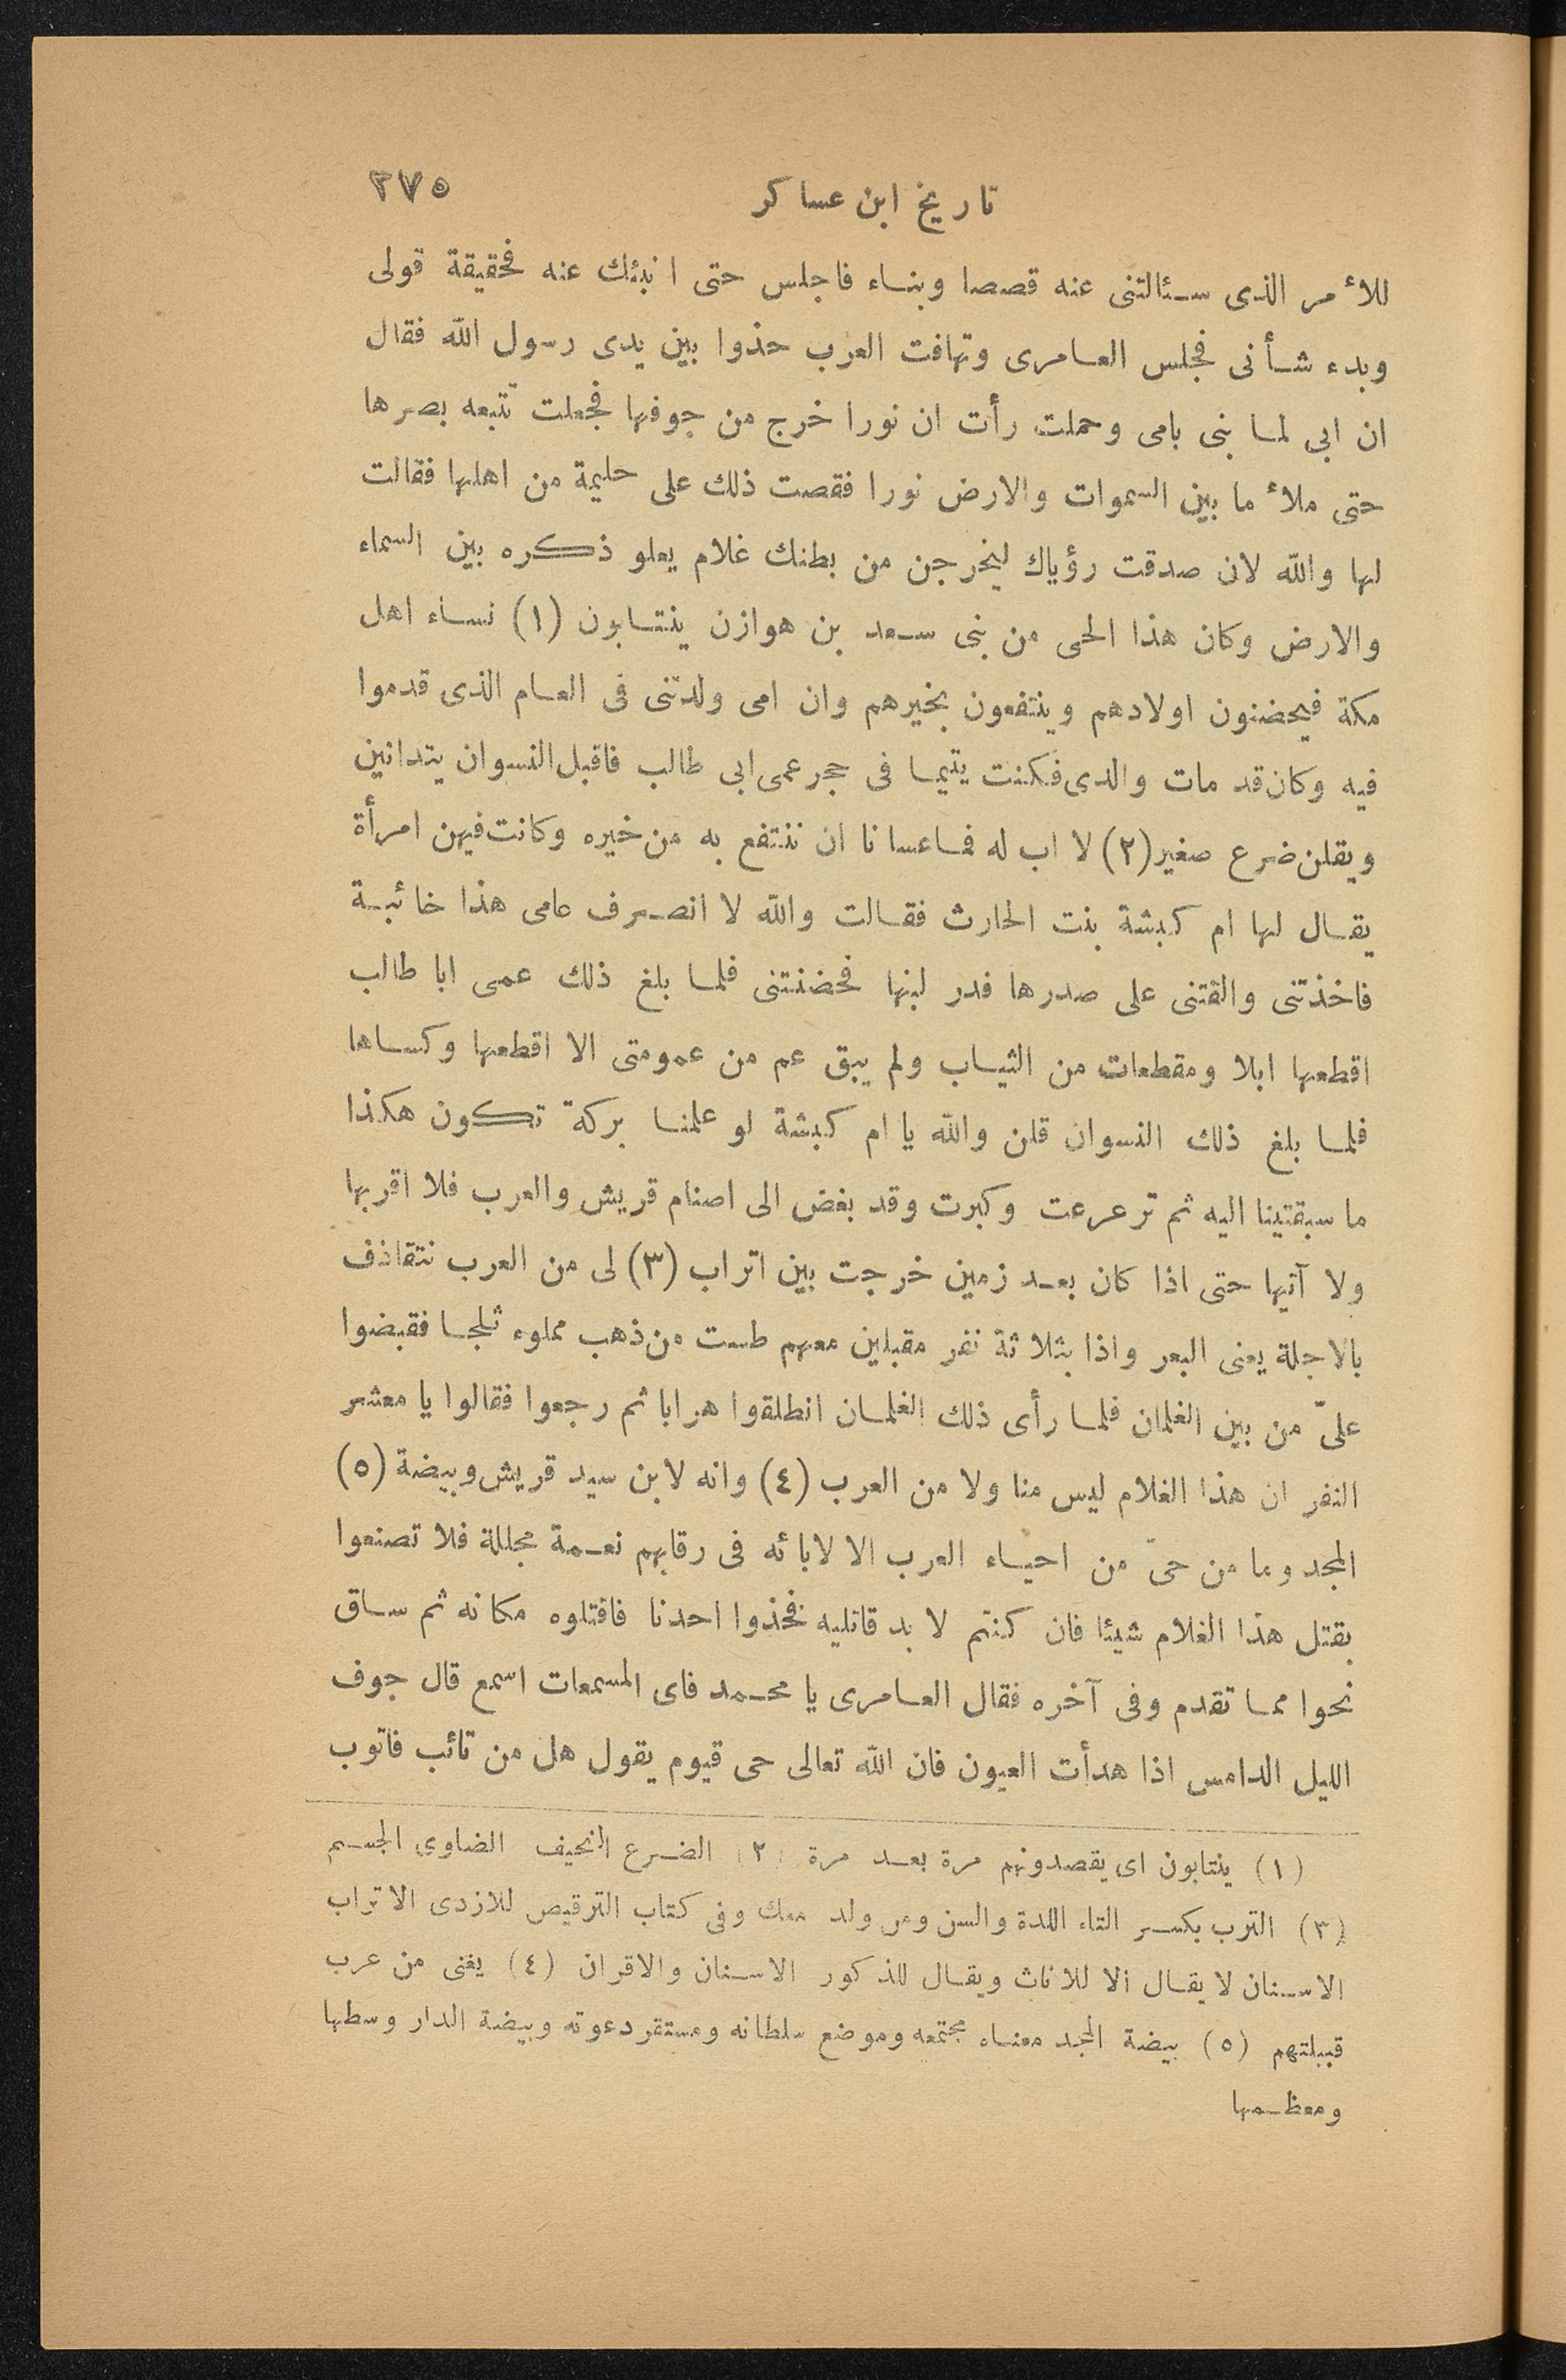 تاريخ ابن عساكر ٣٧٥
للأمر الذى سئالتنى عنه قصصا وبناء فاجلس حتى انبئك عنه فحقيقة قولى
وبدء شأنى فجلس العامرى وتهافت العرب حذوا بين يدى رسول الله فقال
ان ابى لما بنى بامى وحملت رأت ان نورا خرج من جوفها فجعلت تتبعه بصرها
حتى ملأ ما بين السموات والارض نورا فقصت ذلك على حليمة من اهلها فقالت
لها والله لان صدقت رؤياك ليخرجن من بطنك غلام يعلو ذكره بين السماء
والارض وكان هذا الحى من بنى سعد بن هوازن ينتابون (١) نساء اهل
مكة فيحضنون اولادهم وينتفعون بخيرهم وان امى ولدتنى فى العام الذى قدموا
فيه وكان قد مات والدى فكنت يتيما فى حجر عمى ابى طالب فاقبل النسوان يتدانين
ويقلن ضرع صغير (٢) لا اب له فما عسانا ان ننتفع به من خيره وكانت فيهن امرأة
يقال لها ام كبشة بنت الحارث فقالت والله لا انصرف عامى هذا خائبة
فاخذتنى والقتنى على صدرها فدر لبنها فحضنتنى فلما بلغ ذلك عمى ابا طالب
اقطعها ابلا ومقطعات من الثياب ولم يبق عم من عمومتى الا اقطعها وكساها
فلما بلغ ذلك النسوان قلن والله يا ام كبشة لو علمنا بركة تكون هكذا
ما سبقتينا اليه ثم ترعرعت وكبرت وقد بغض الى اصنام قريش والعرب فلا اقربها
ولا آتيها حتى اذا كان بعد زمين خرجت بين اتراب (٣) لى من العرب نتقاذف
بالاجلة يعنى البعر واذا بثلاثة نفر مقبلين معهم طست من ذهب مملوء ثلجا فقبضوا
علىّ من بين الغلمان فلما رأى ذلك الغلمان انطلقوا هرابا ثم رجعوا فقالوا يا معشر
النفر ان هذا الغلام ليس منا ولا من العرب (٤) وانه لابن سيد قريش وبيضة (٥)
المجد وما من حىّ من احياء العرب الا لابائه فى رقابهم نعمة مجللة فلا تصنعوا
بقتل هذا الغلام شيئا فان كنتم لا بد قاتليه فخذوا احدنا فاقتلوه مكانه ثم ساق
نحوا مما تقدم وفى آخره فقال العامرى يا محمد فاى المسمعات اسمع قال جوف
الليل الدامس اذا هدأت العيون فان الله تعالى حى قيوم يقول هل من تائب فاتوب
(١) ينتابون اى يقصدونهم مرة بعد مرة (٢) الضرع النحيف الضاوى الجسم
(٣) الترب بكسر التاء اللدة والسن ومن ولد معك وفى كتاب الترقيص للازدى الاتراب
الاسنان لا يقال الا للاناث ويقال للذكور الاسنان والاقران (٤) يعنى من عرب
قبيلتهم (٥) بيضة المجد معناه مجتمعه وموضع سلطانه ومستقر دعوته وبيضة الدار وسطها
ومعظمها